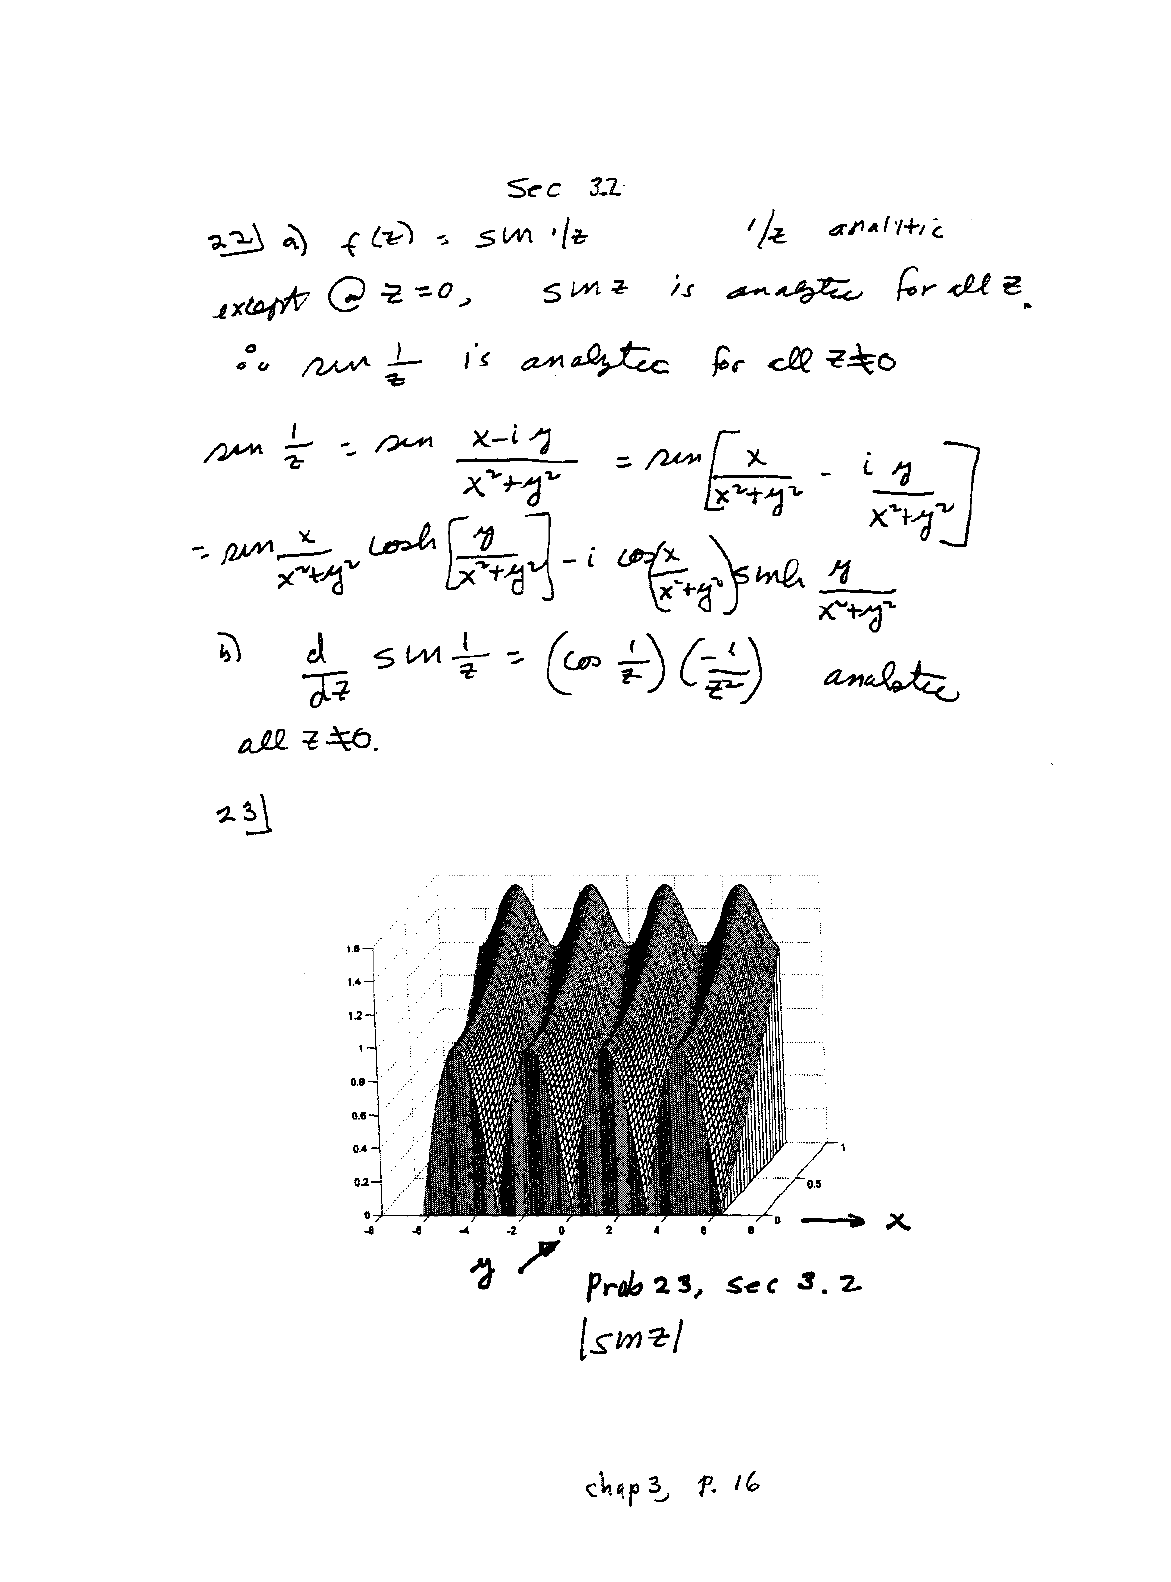 Sec 3.2
22] a) f(z) = sin 1/z 1/z analitic
except @ z=0, sin z is analytic for all z.
∴ sin 1/z is analytic for all z≠0
sin 1/z = sin (x-iy)/(x²+y²) = sin [x/(x²+y²) - i y/(x²+y²)]
= sin x/(x²+y²) cosh [y/(x²+y²)] - i cos(x/(x²+y²)) sinh y/(x²+y²)
b) d/dz sin 1/z = (cos 1/z) (-1/z²) analytic
all z≠0.
23]
1.6
1.4
1.2
1
0.8
0.6
0.4
0.2
0
-8 -6 -4 -2 0 2 4 6 8
0 0.5 1
→ x
y ↗
Prob 23, sec 3.2
|sin z|
chap 3, p. 16